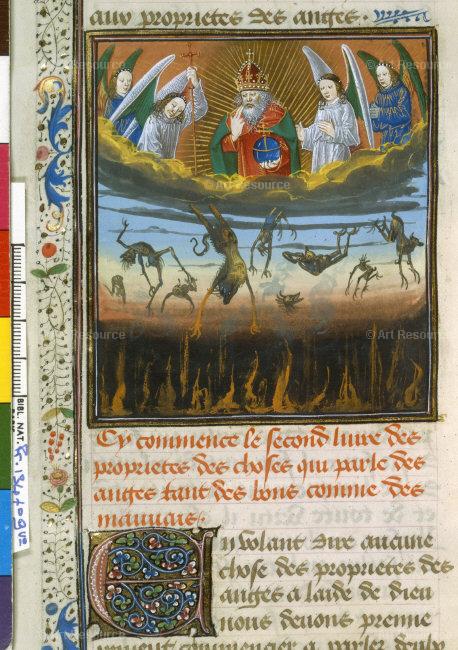 aux proprietes des anges.
Cy commence le second liure des
proprietes des choses qui parle des
anges tant des bons comme des
mauuais.
En volant dire aucune
chose des proprietes des
angels a laide de dieu
nous deuons premie
rement commencier a parler
BIBL. NAT.
Art Resource
Art Resource
Art Resource
Art Resource
Art Resource